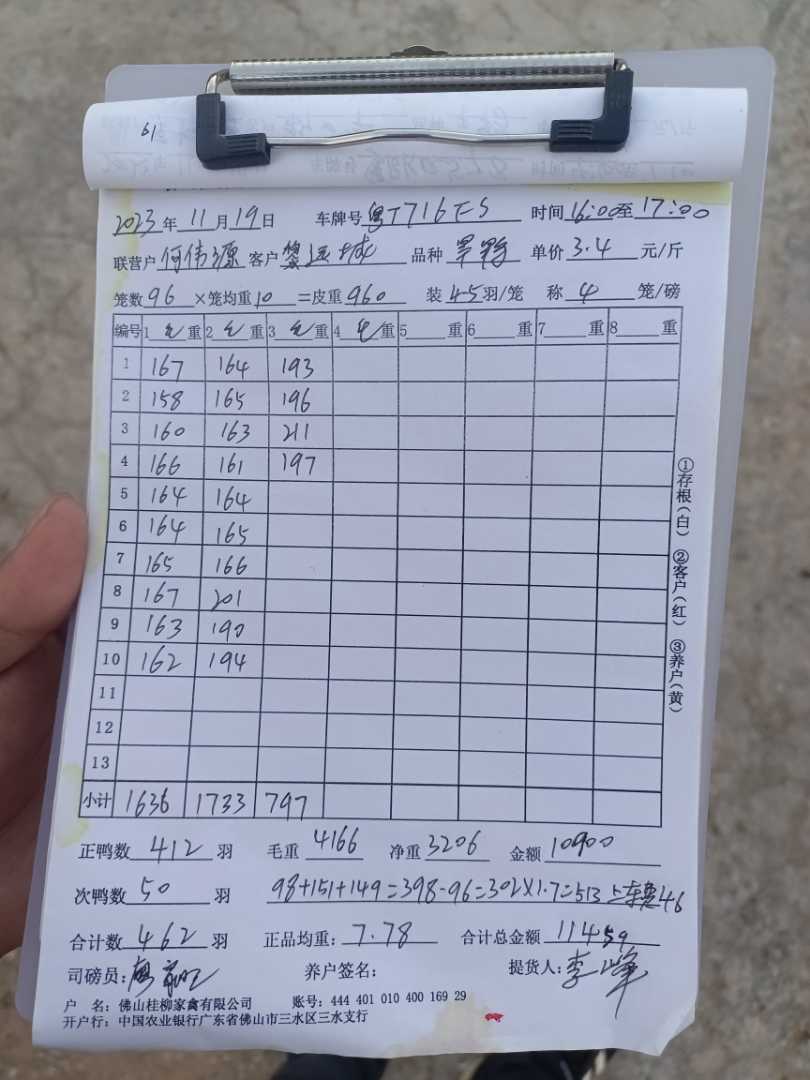 61
2023年11月19日 车牌号粤T716FS 时间16:00至17:00
联营户何伟源 客户 品种 单价3.4元/斤
笼数96×笼均重10=皮重960 装4-5羽/笼 称4笼/磅
编号 1毛重 2毛重 3毛重 4毛重 5重 6重 7重 8重
1 167 164 193
2 158 165 196
3 160 163 211
4 166 161 197
5 164 164
6 164 165
7 165 166
8 167 201
9 163 190
10 162 194
11
12
13
小计 1636 1733 797
正鸭数412羽 毛重4166 净重3206 金额10900
次鸭数50羽 98+151+149=398-96=302×1.7=513 上车费46
合计数462羽 正品均重:7.78 合计总金额11459
司磅员: 养户签名: 提货人:李峰
户 名:佛山桂柳家禽有限公司 账号:444 401 010 400 169 29
开户行:中国农业银行广东省佛山市三水区三水支行
①存根(白) ②客户(红) ③养户(黄)